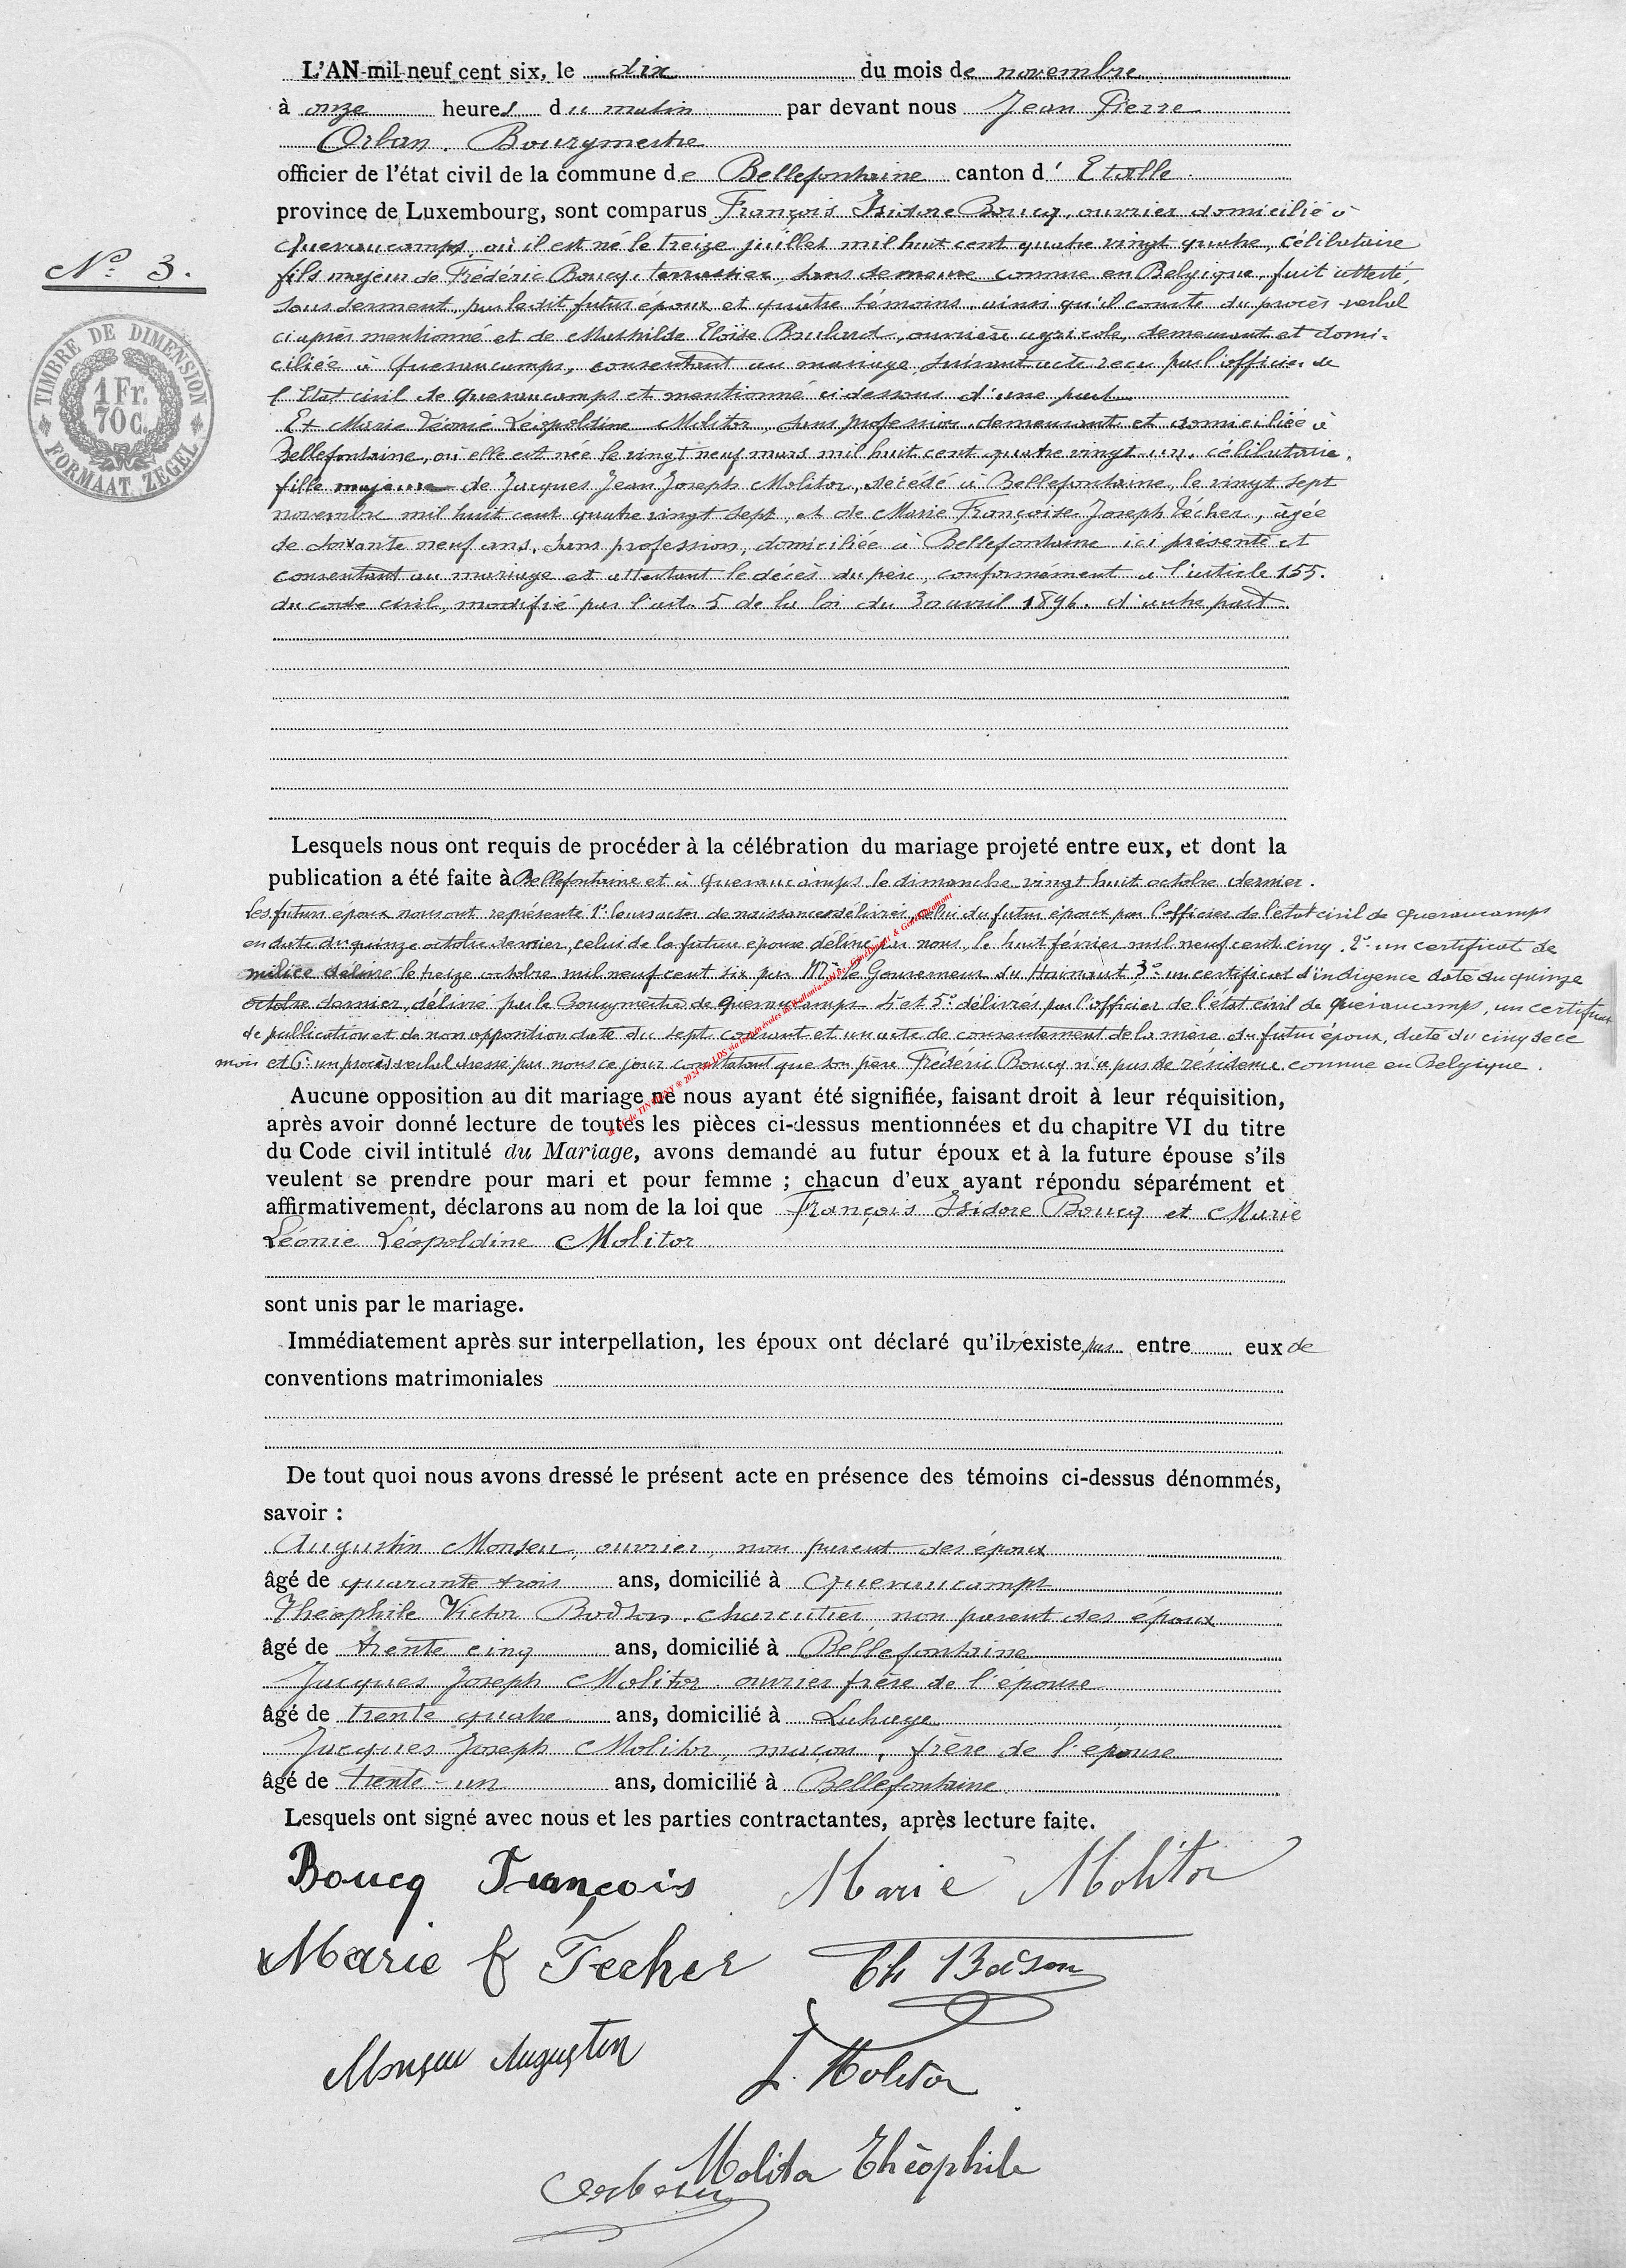 L'AN mil neuf cent six, le dix du mois de novembre
à onze heures du matin par devant nous Jean Pierre
Orban, Bourgmestre
officier de l'état civil de la commune de Bellefontaine canton d' Etalle
province de Luxembourg, sont comparus François Isidore Boucq, ouvrier domicilié à
Quevaucamps, où il est né le treize juillet mil huit cent quatre vingt quatre, célibataire
N° 3.
fils majeur de Frédéric Boucq, terrassier, sans demeure connue en Belgique, fait attesté,
sous serment, par ledit futur époux et quatre témoins, ainsi qu'il conste du procès-verbal
TIMBRE DE DIMENSION
1 Fr.
70 c.
FORMAAT ZEGEL
ci après mentionné et de Mathilde Eloïse Brulard, ouvrière agricole, demeurant et domi-
ciliée à Quevaucamps, consentant au mariage, suivant acte reçu par l'officier de
l'Etat civil de Quevaucamps et mentionné ci dessous d'une part
Et Marie Léonie Léopoldine Molitor, sans profession demeurant et domiciliée à
Bellefontaine, où elle est née le vingt neuf mars mil huit cent quatre vingt un, célibataire,
fille majeure de Jacques Jean Joseph Molitor, décédé à Bellefontaine, le vingt sept
novembre mil huit cent quatre vingt sept, et de Marie Françoise Joseph Técher, âgée
de soixante neuf ans, sans profession, domiciliée à Bellefontaine ici présente et
consentant au mariage et attestant le décès du père, conformément à l'article 155.
du code civil, modifié par l'art. 5 de la loi du 30 avril 1896. d'autre part.
Lesquels nous ont requis de procéder à la célébration du mariage projeté entre eux, et dont la
publication a été faite à Bellefontaine et à Quevaucamps le dimanche vingt huit octobre dernier.
Les futurs époux nous ont représenté 1° leurs actes de naissance délivrés, celui du futur époux par l'officier de l'état civil de Quevaucamps
en date du quinze octobre dernier, celui de la future épouse délivré par nous, le huit février mil neuf cent cinq. 2° un certificat de
milice délivré le treize octobre mil neuf cent six par Mr le Gouverneur du Hainaut 3° un certificat d'indigence daté du quinze
octobre dernier, délivré par le Bourgmestre de Quevaucamps 4° et 5° délivrés par l'officier de l'état civil de Quevaucamps, un certificat
de publication et de non opposition daté du sept courant et un acte de consentement de la mère du futur époux, daté du cinq de ce
mois et 6° un procès verbal dressé par nous ce jour constatant que son père Frédéric Boucq n'a pas de résidence connue en Belgique.
Aucune opposition au dit mariage ne nous ayant été signifiée, faisant droit à leur réquisition,
après avoir donné lecture de toutes les pièces ci-dessus mentionnées et du chapitre VI du titre
du Code civil intitulé du Mariage, avons demandé au futur époux et à la future épouse s'ils
veulent se prendre pour mari et pour femme ; chacun d'eux ayant répondu séparément et
affirmativement, déclarons au nom de la loi que François Isidore Boucq et Marie
Léonie Léopoldine Molitor
sont unis par le mariage.
Immédiatement après sur interpellation, les époux ont déclaré qu'il n'existe pas entre eux de
conventions matrimoniales
De tout quoi nous avons dressé le présent acte en présence des témoins ci-dessus dénommés,
savoir :
Augustin Monseu, ouvrier, non parent des époux
âgé de quarante trois ans, domicilié à Quevaucamps
Théophile Victor Bodson, charcutier, non parent des époux
âgé de trente cinq ans, domicilié à Bellefontaine
Jacques Joseph Molitor ouvrier frère de l'épouse
âgé de trente quatre ans, domicilié à Lahage
Jacques Joseph Molitor, maçon, frère de l'épouse
âgé de trente-un ans, domicilié à Bellefontaine
Lesquels ont signé avec nous et les parties contractantes, après lecture faite.
Boucq François Marie Molitor
Marie f Techer Th Bodson
Monseu Augustin J. Molitor
Molitor Théophile
Orban